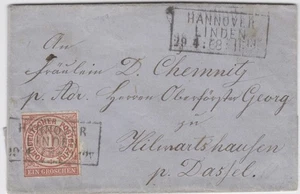 HANNOVER
LINDEN
An
Fräulein D. Chemnitz
p. Adr. Herren Oberförster Georg
zu
Hilwartshausen
p. Dassel.
HANNOVER
LIND
EIN GROSCHEN